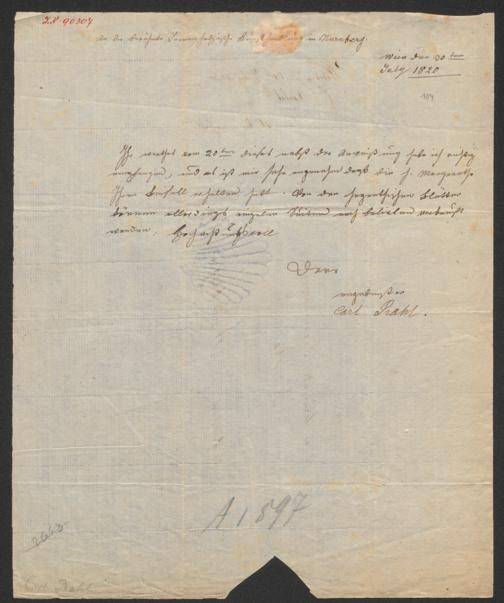 I.N. 90304
An die berühmte Frauenholzische Kunsthandlung in Nürnberg.
Wien den 30ten
July 1820
104
Ihr werthes vom 20ten dieses nebst der Anweißung habe ich richtig
empfangen, und es ist mir sehr angenehm daß die h. Margaretha
Ihren Beifall erhalten hat. Von den
können allerdings einzelne nach belieben verkauft
werden. Hochachtungsvoll
Dero
ergebenster
Carl Rahl.
A 1897
Carl Rahl